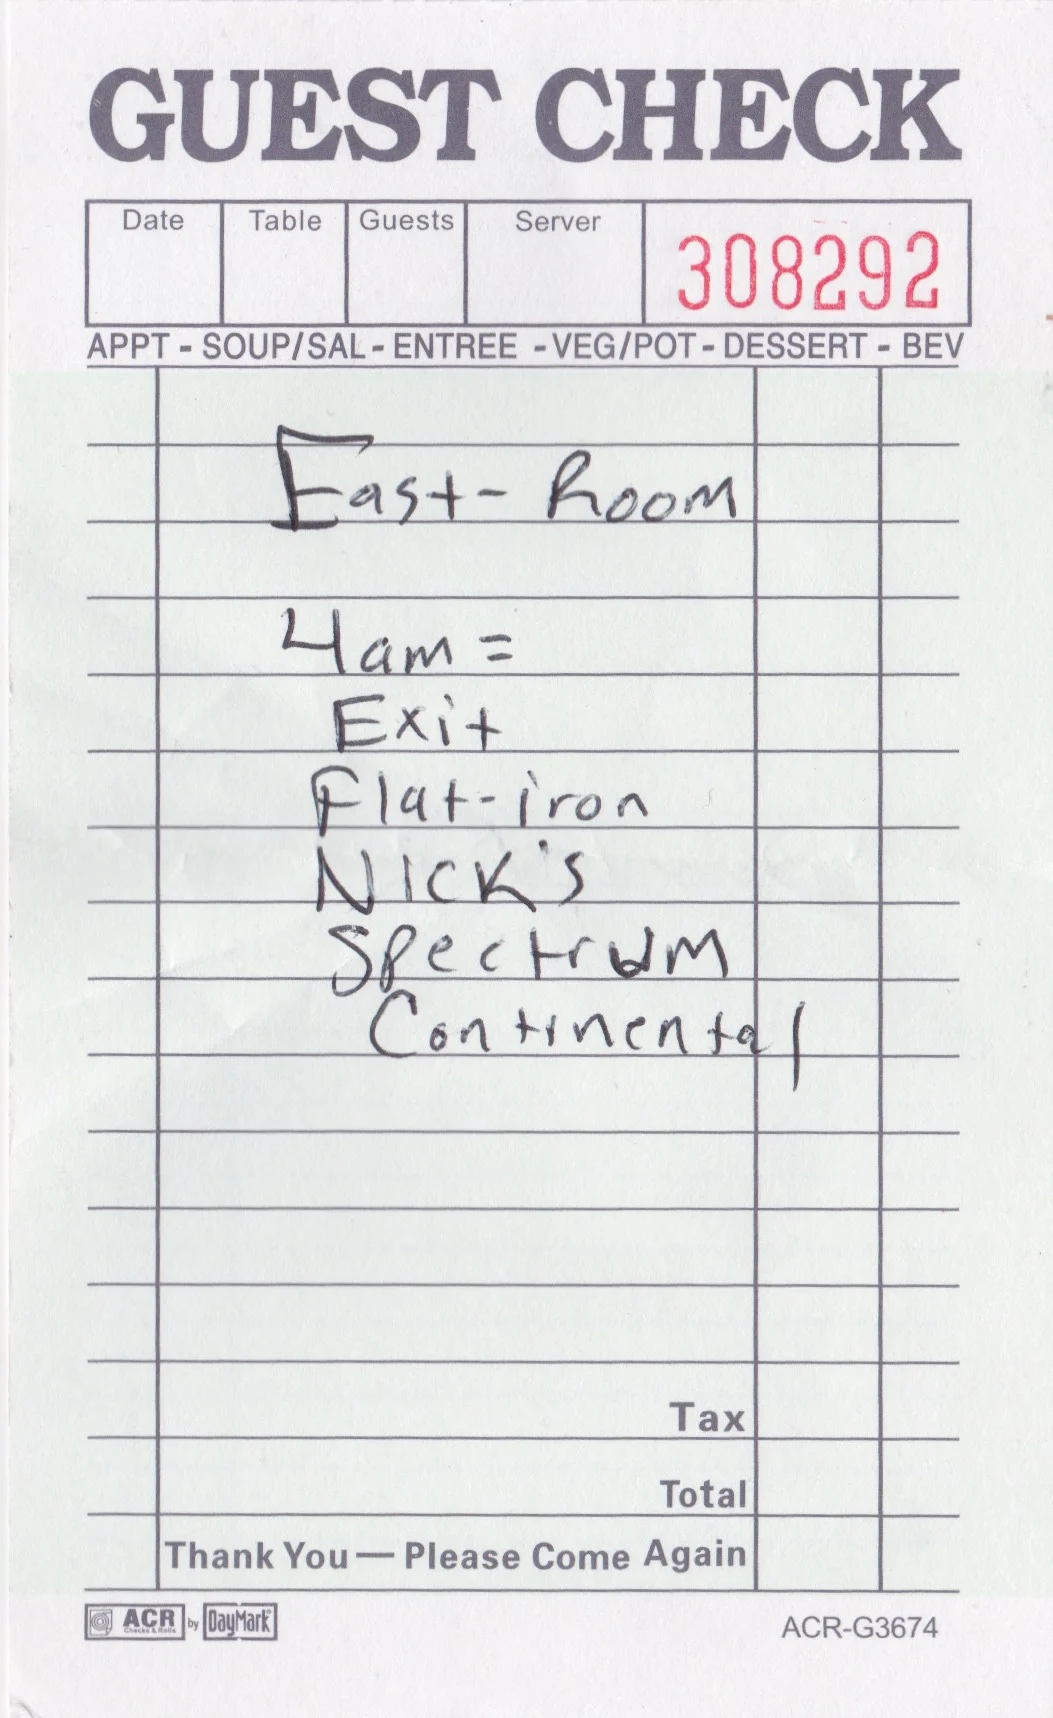 GUEST CHECK
Date Table Guests Server
308292
APPT - SOUP/SAL - ENTREE - VEG/POT - DESSERT - BEV
East- Room
4am =
Exit
Flat-iron
Nick's
Spectrum
Continental
Tax
Total
Thank You — Please Come Again
ACR Checks & Rolls by DayMark ACR-G3674